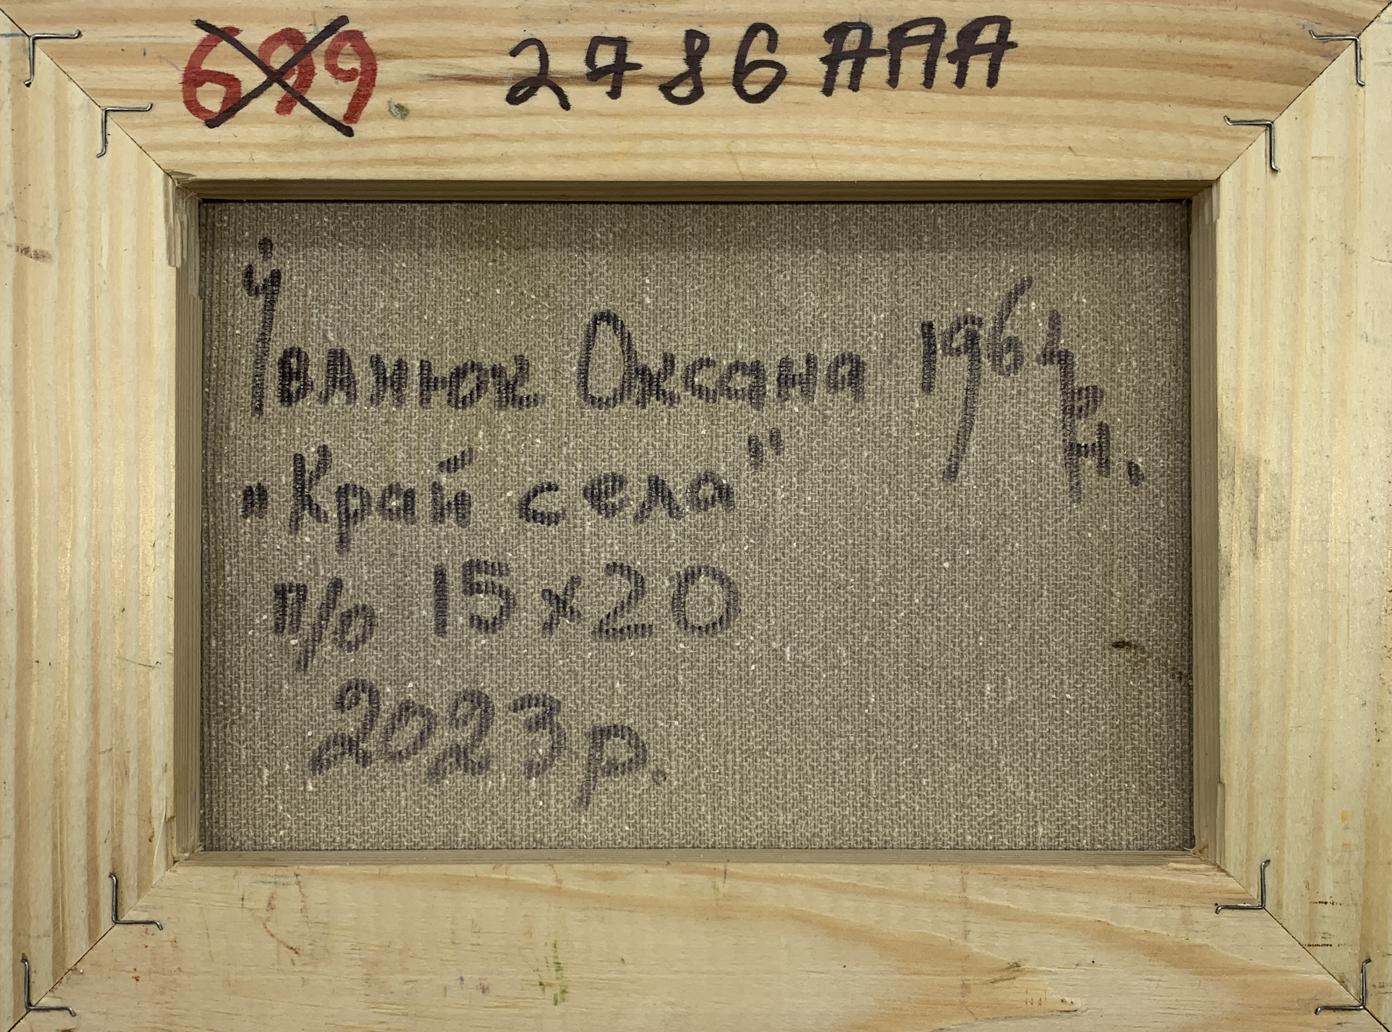 699 2786 AAA
Іванюк Оксана 1961 р.н.
"Край села"
п/о 15х20
2023 р.